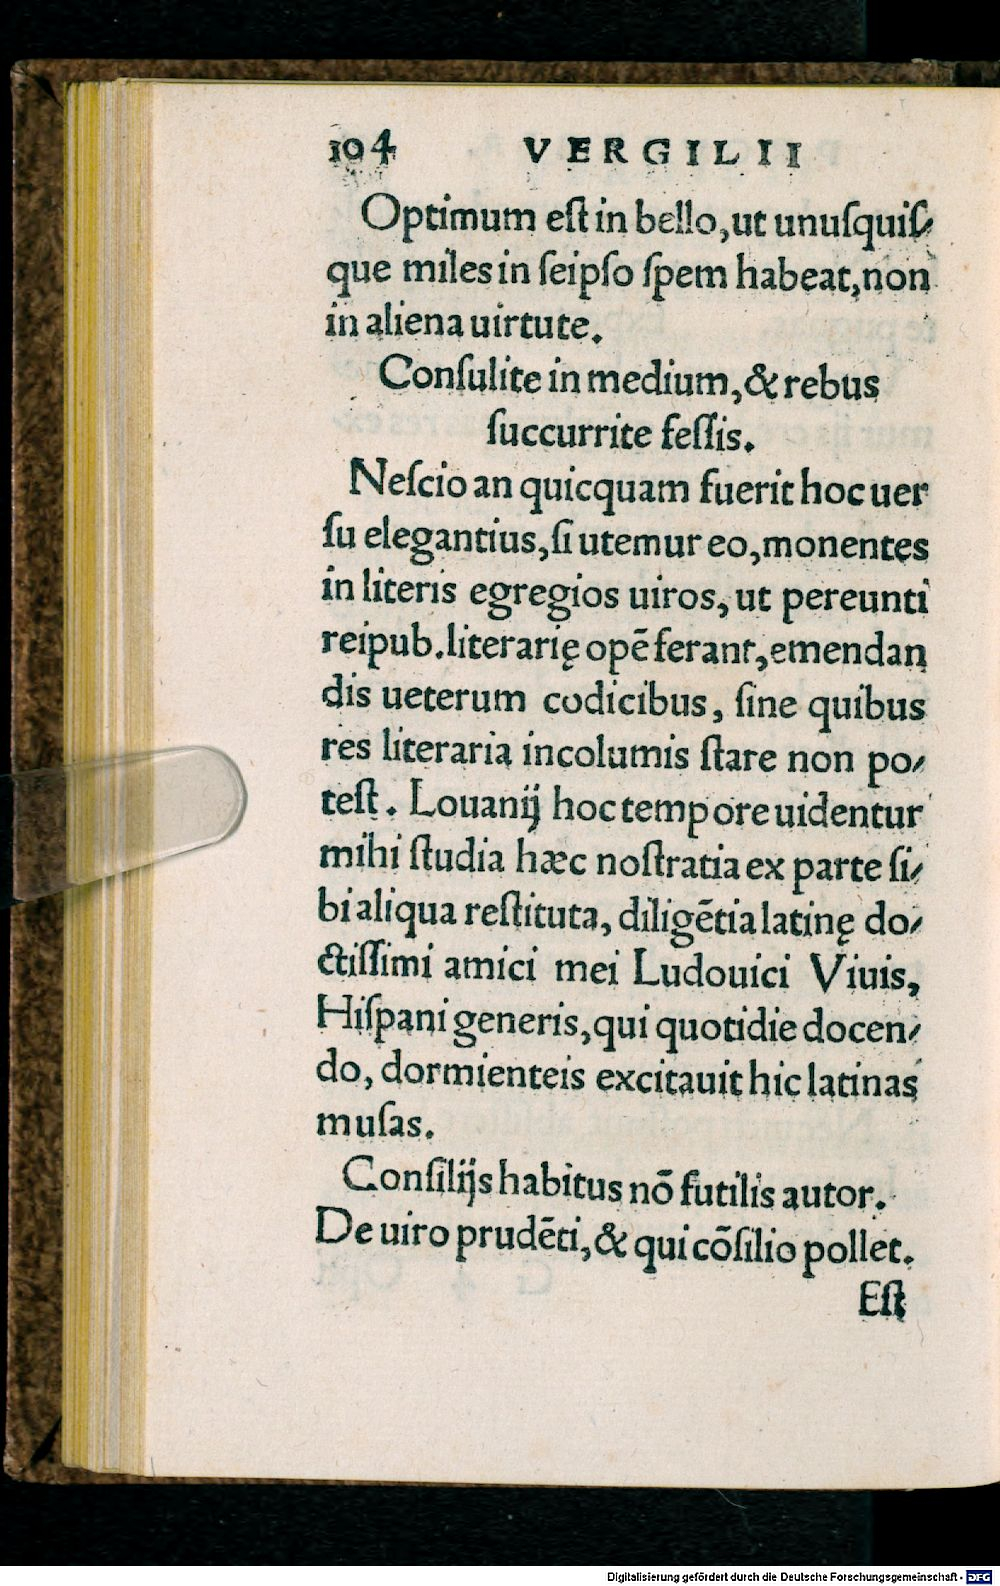 104 VERGILII
Optimum eſt in bello, ut unuſquiſ⸗
que miles in ſeipſo ſpem habeat, non
in aliena uirtute.
Conſulite in medium, & rebus
ſuccurrite feſſis.
Neſcio an quicquam fuerit hoc uer
ſu elegantius, ſi utemur eo, monentes
in literis egregios uiros, ut pereunti
reipub. literarię opē ferant, emendan
dis ueterum codicibus, ſine quibus
res literaria incolumis ſtare non po⸗
teſt. Louanij hoc tempore uidentur
mihi ſtudia hæc noſtratia ex parte ſi⸗
bi aliqua reſtituta, diligētia latinę do⸗
ctiſſimi amici mei Ludouici Viuis,
Hiſpani generis, qui quotidie docen⸗
do, dormienteis excitauit hic latinas
muſas.
Conſilijs habitus nō futilis autor.
De uiro prudēti, & qui cōſilio pollet.
Eſt
Digitalisierung gefördert durch die Deutsche Forschungsgemeinschaft - DFG